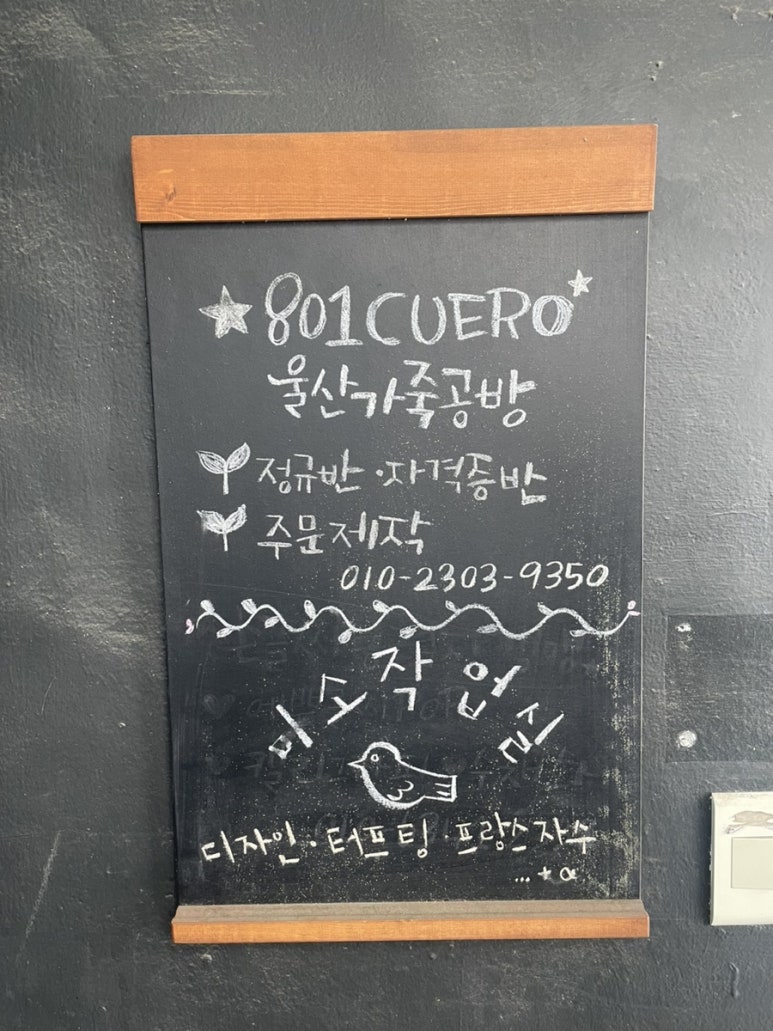 801CUERO
울산가죽공방
정규반·자격증반
주문제작
010-2303-9350
미소작업실
디자인·터프팅·프랑스자수
...+α